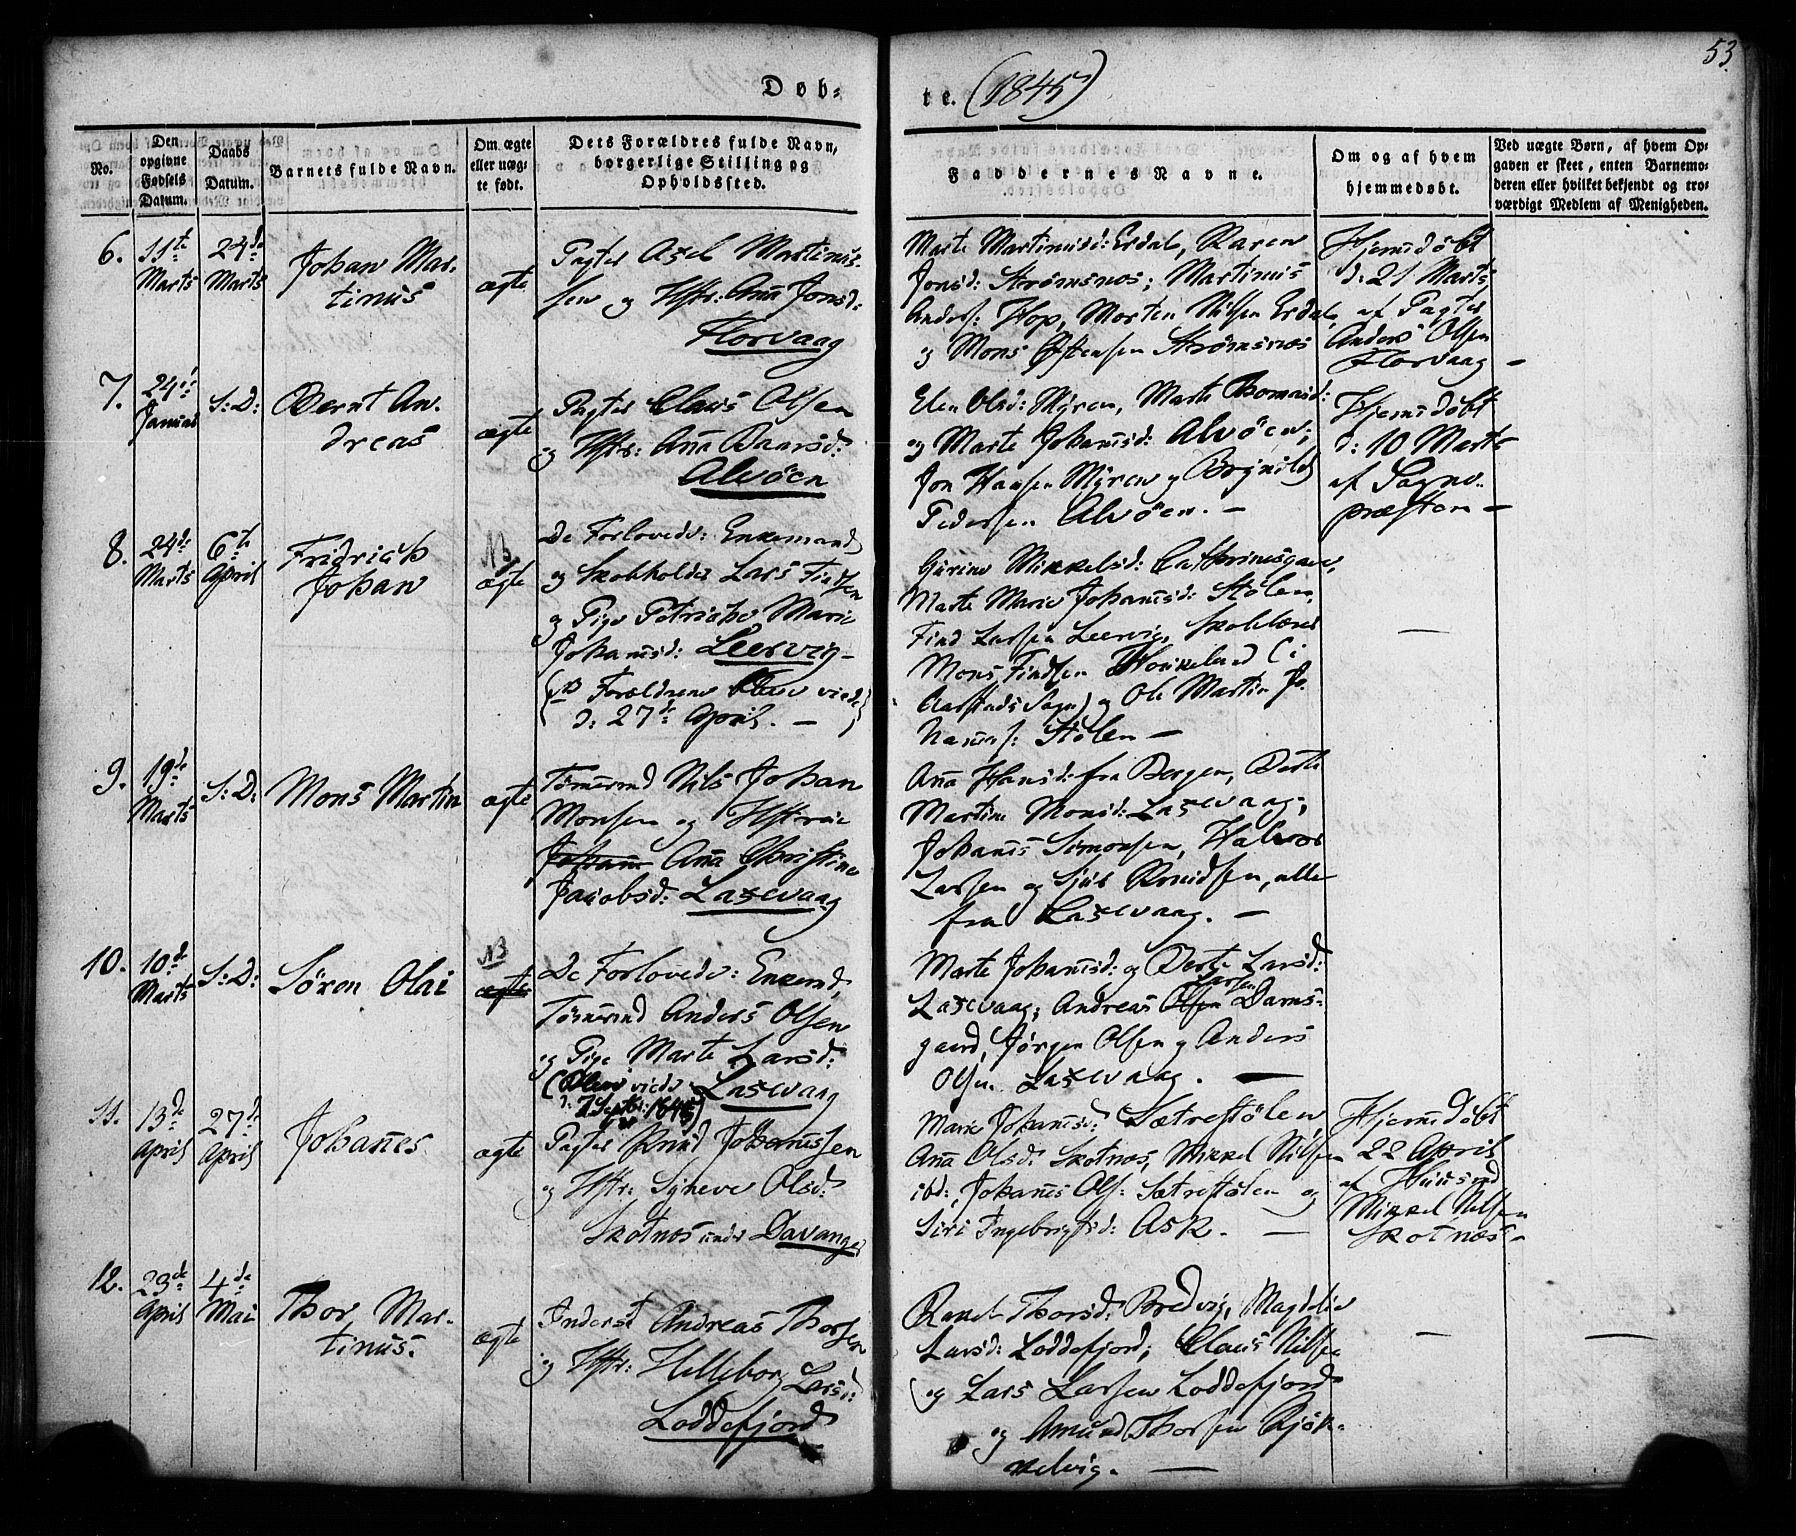 53
Døb-
te. (1845)
No.
Den opgivne Fødsels Datum.
Daabs Datum.
Barnets fulde Navn.
Om ægte eller uægte født.
Dets Forældres fulde Navn, borgerlige Stilling og Opholdssted.
Faddernes Navne.
Om og af hvem hjemmedøbt.
Ved uægte Børn, af hvem Opgaven er skeet, enten Barnemoderen eller hvilket bekjendt og troværdigt Medlem af Menigheden.
6.
11te Marts
24de Marts
Johan Mar-
tinus
ægte
Pagter Axel Martinus-
sen og Hstr: Anna Jonsd:
Florvaag
Marte Martinusd: Erdal, Karen
Jonsd: Strømsnes; Martinus
Anders: Hop, Morten Nilsen Erdal
og Mons Østensen Strømsnæs
Hjemdøbt
d: 21 Marts
af Pagter
Anders Olsen
Florvaag -
7.
24de Januar
S: D:
Bernt An-
dreas
ægte
Pagter Claus Olsen
og Hstr: Anna Baarsd:
Alvøen
Elen Olsd: Myren, Marte Thomasd:
og Marte Johannsd: Alvøen;
Jon Hansen Myren og Brynild
Pedersen Alvøen. -
Hjemdøbt
d: 10 Marts
af Sogne-
præsten -
8.
24de Marts
6te April
Fridrich
Johan
NB
ægte
De Forlovede: Enkemand
og Skoleholder Lars Findsen
og Pige Petriche Marie
Johannsd: Leervig -
(NB Forældrene blev viede
d: 27de April. -)
Gurine Mikkelsd:
Marte Marie Johannsd: Stølen,
Find Larsen Leervig, Skolelærer
Mons Findsen Haukeland (i
Aarstads Sogn) og Ole Martin Jo-
hannes: Stølen -
-
9.
19de Marts
S: D:
Mons Martin
ægte
Tømmermd Nils Johan
Monsen og Hstrue
Anna Christine
Jacobsd: Laxevaag
Anna Hansd: fra Bergen, Berte
Martine Monsd: Laxevaag;
Johannes Simonsen, Halvor
Larsen og Sjur Knudsen, alle
fra Laxevaag. -
10.
10de Marts
S: D:
Søren Olai
NB
ægte
De Forlovede: Enkemd,
Tømmermd Anders Olsen
og Pige Marte Larsd:
(bleve viede Laxevaag
d: 7 Septbr: 1845)
Marte Johannsd: og Berte Larsd:
Larsen
Laxevaag; Andreas Olsen Dams-
gaard, Jørgen Olsen og Anders
Olsen Laxevaag. -
11.
13de April
27de April
Johannes
ægte
Pagter Knud Johannessen
og Hstr: Synneve Olsd:
Skotnes under Davanger
Marie Johannsd: Sætrestølen,
Anna Olsd: Skotnes, Mikkel Nilsen
ibd:, Johannes Ols: Sætrestølen og
Siri Ingebrigtsd: Ask. -
Hjemdøbt
22 April
af Huusmd
Mikkel Nilsen
Skotnæs -
12.
23de April
4de Mai
Thor Mar-
tinus.
ægte
Inderst Andreas Thorsen
og Hstr: Helleborg Larsd:
Loddefjord
Thorsd: Bredvig, Magdele
Larsd: Loddefjord; Claus Nilsen
og Lars Larsen Loddefjord
og Amund Thorsen Bjør-
nelvig. -
-
-